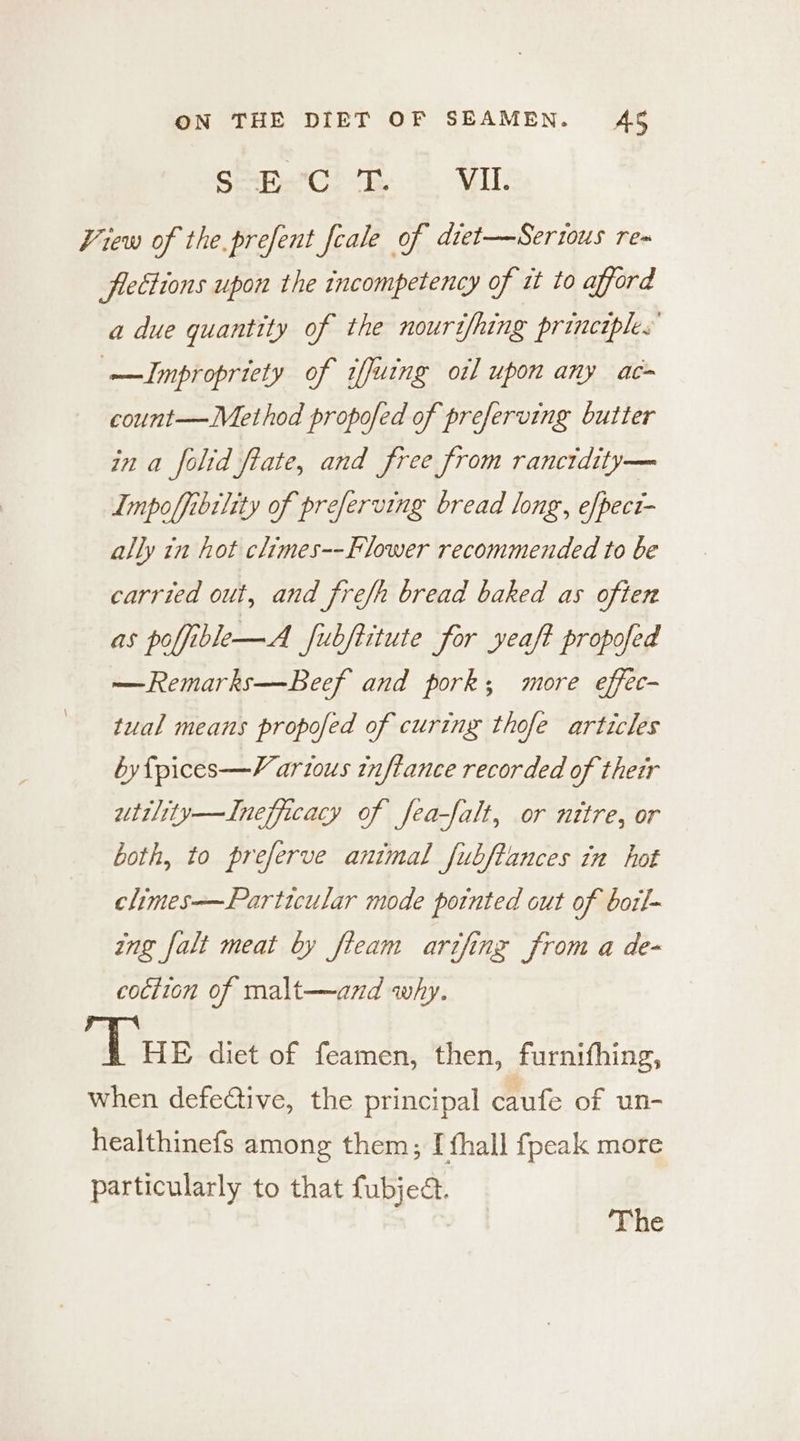 ON THE DIET OF SEAMEN. 45
SECT. VII.
View of the preſent ſcale of diet—Serious re-
flections upon the incompetency of it to afford
a due quantity of the nouriſhing principles
—Impropriety of iſſuing oil upon any ac-
count—Method propoſed of preſerving butter
in a ſolid ſtate, and free from rancidity—
Impoſſibility of preſerving bread long, eſpeci-
ally in hot climes--Flower recommended to be
carried out, and freſh bread baked as often
as poſſible—A ſubſtitute for yeaſt propoſed
—Remarks—Beef and pork; more effec-
tual means propoſed of curing thoſe articles
by ſpices—Various inſtance recorded of their
utility—Inefficacy of ſea-ſalt, or nitre, or
both, to preſerve animal ſubſtances in hot
climes—Particular mode pointed out of boil-
ing ſalt meat by ſteam ariſing from a de-
coction of malt—and why.
THE diet of ſeamen, then, furniſhing,
when defective, the principal cauſe of un-
healthineſs among them; I ſhall ſpeak more
particularly to that ſubject.
The